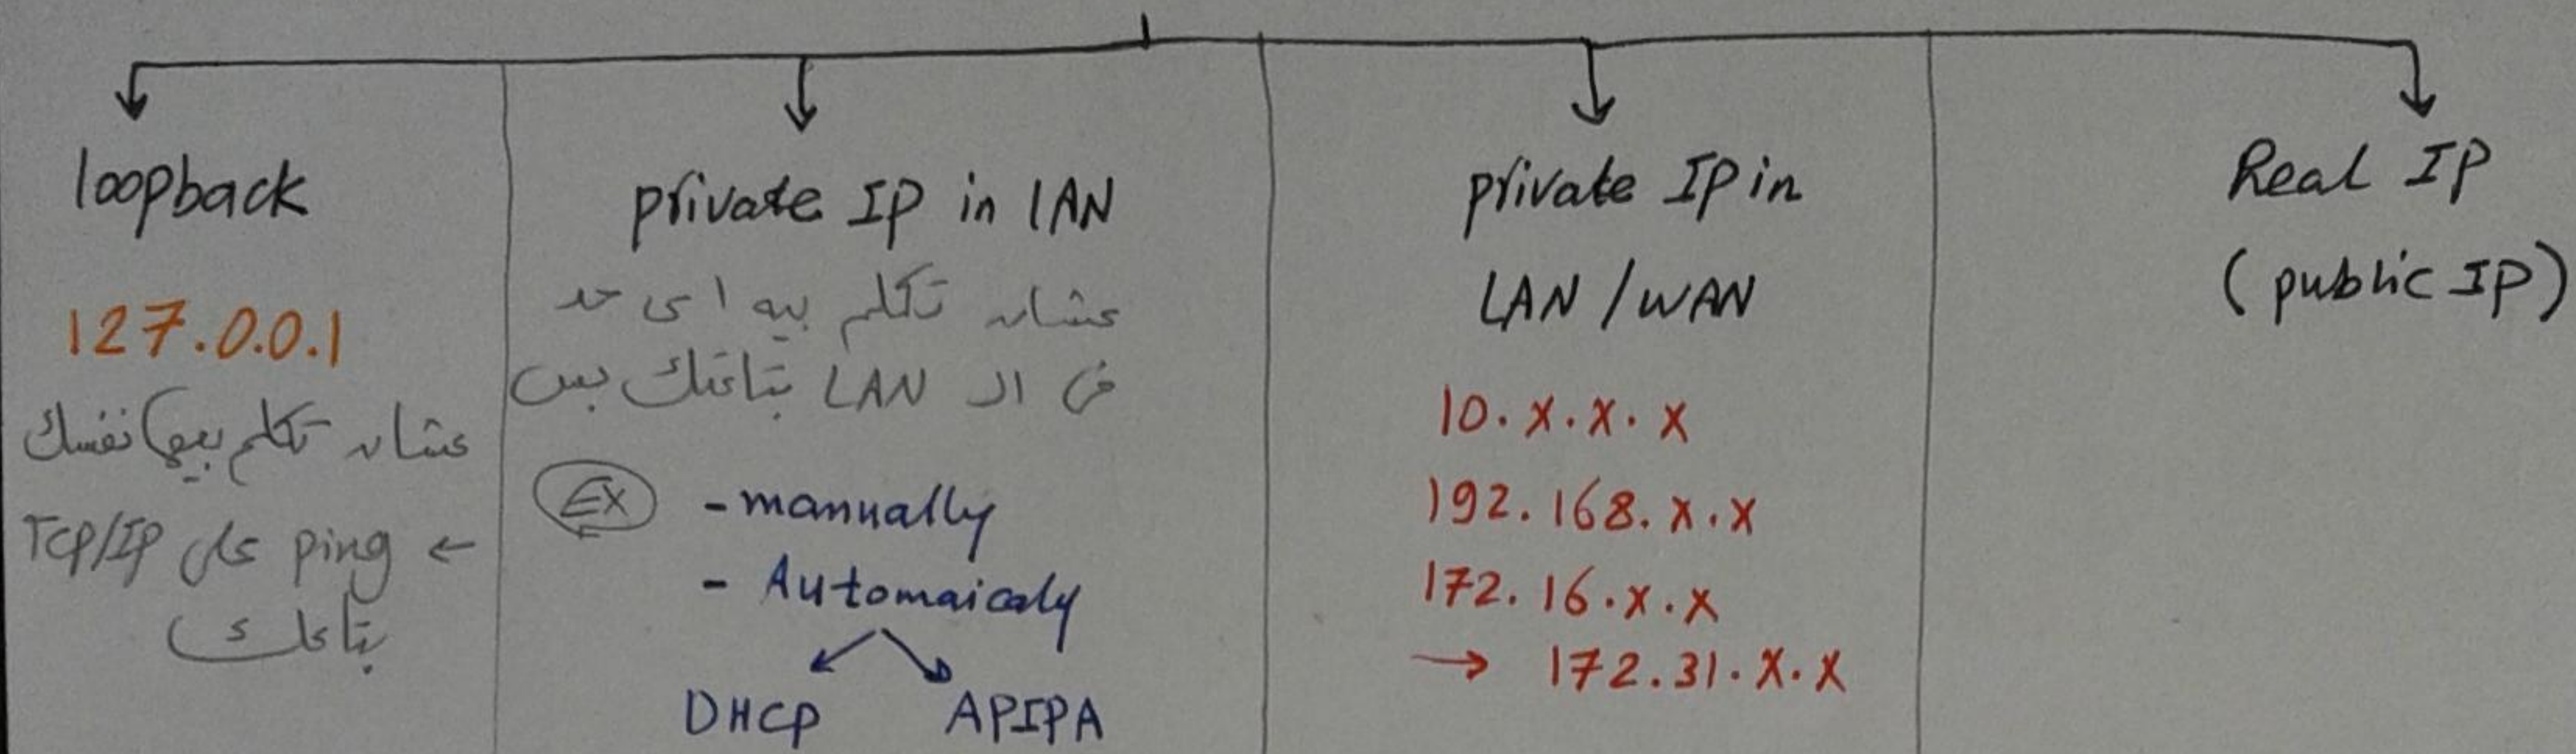 loopback
127.0.0.1
عشان تكلم بيها نفسك
← ping على TCP/IP
بتاعك
private IP in LAN
عشان تكلم بيه اى حد
فى الـ LAN بتاعتك بس
EX
- manually
- Automaicaly
DHCP APIPA
private IP in
LAN / WAN
10.x.x.x
192.168.x.x
172.16.x.x
→ 172.31.x.x
Real IP
(public IP)